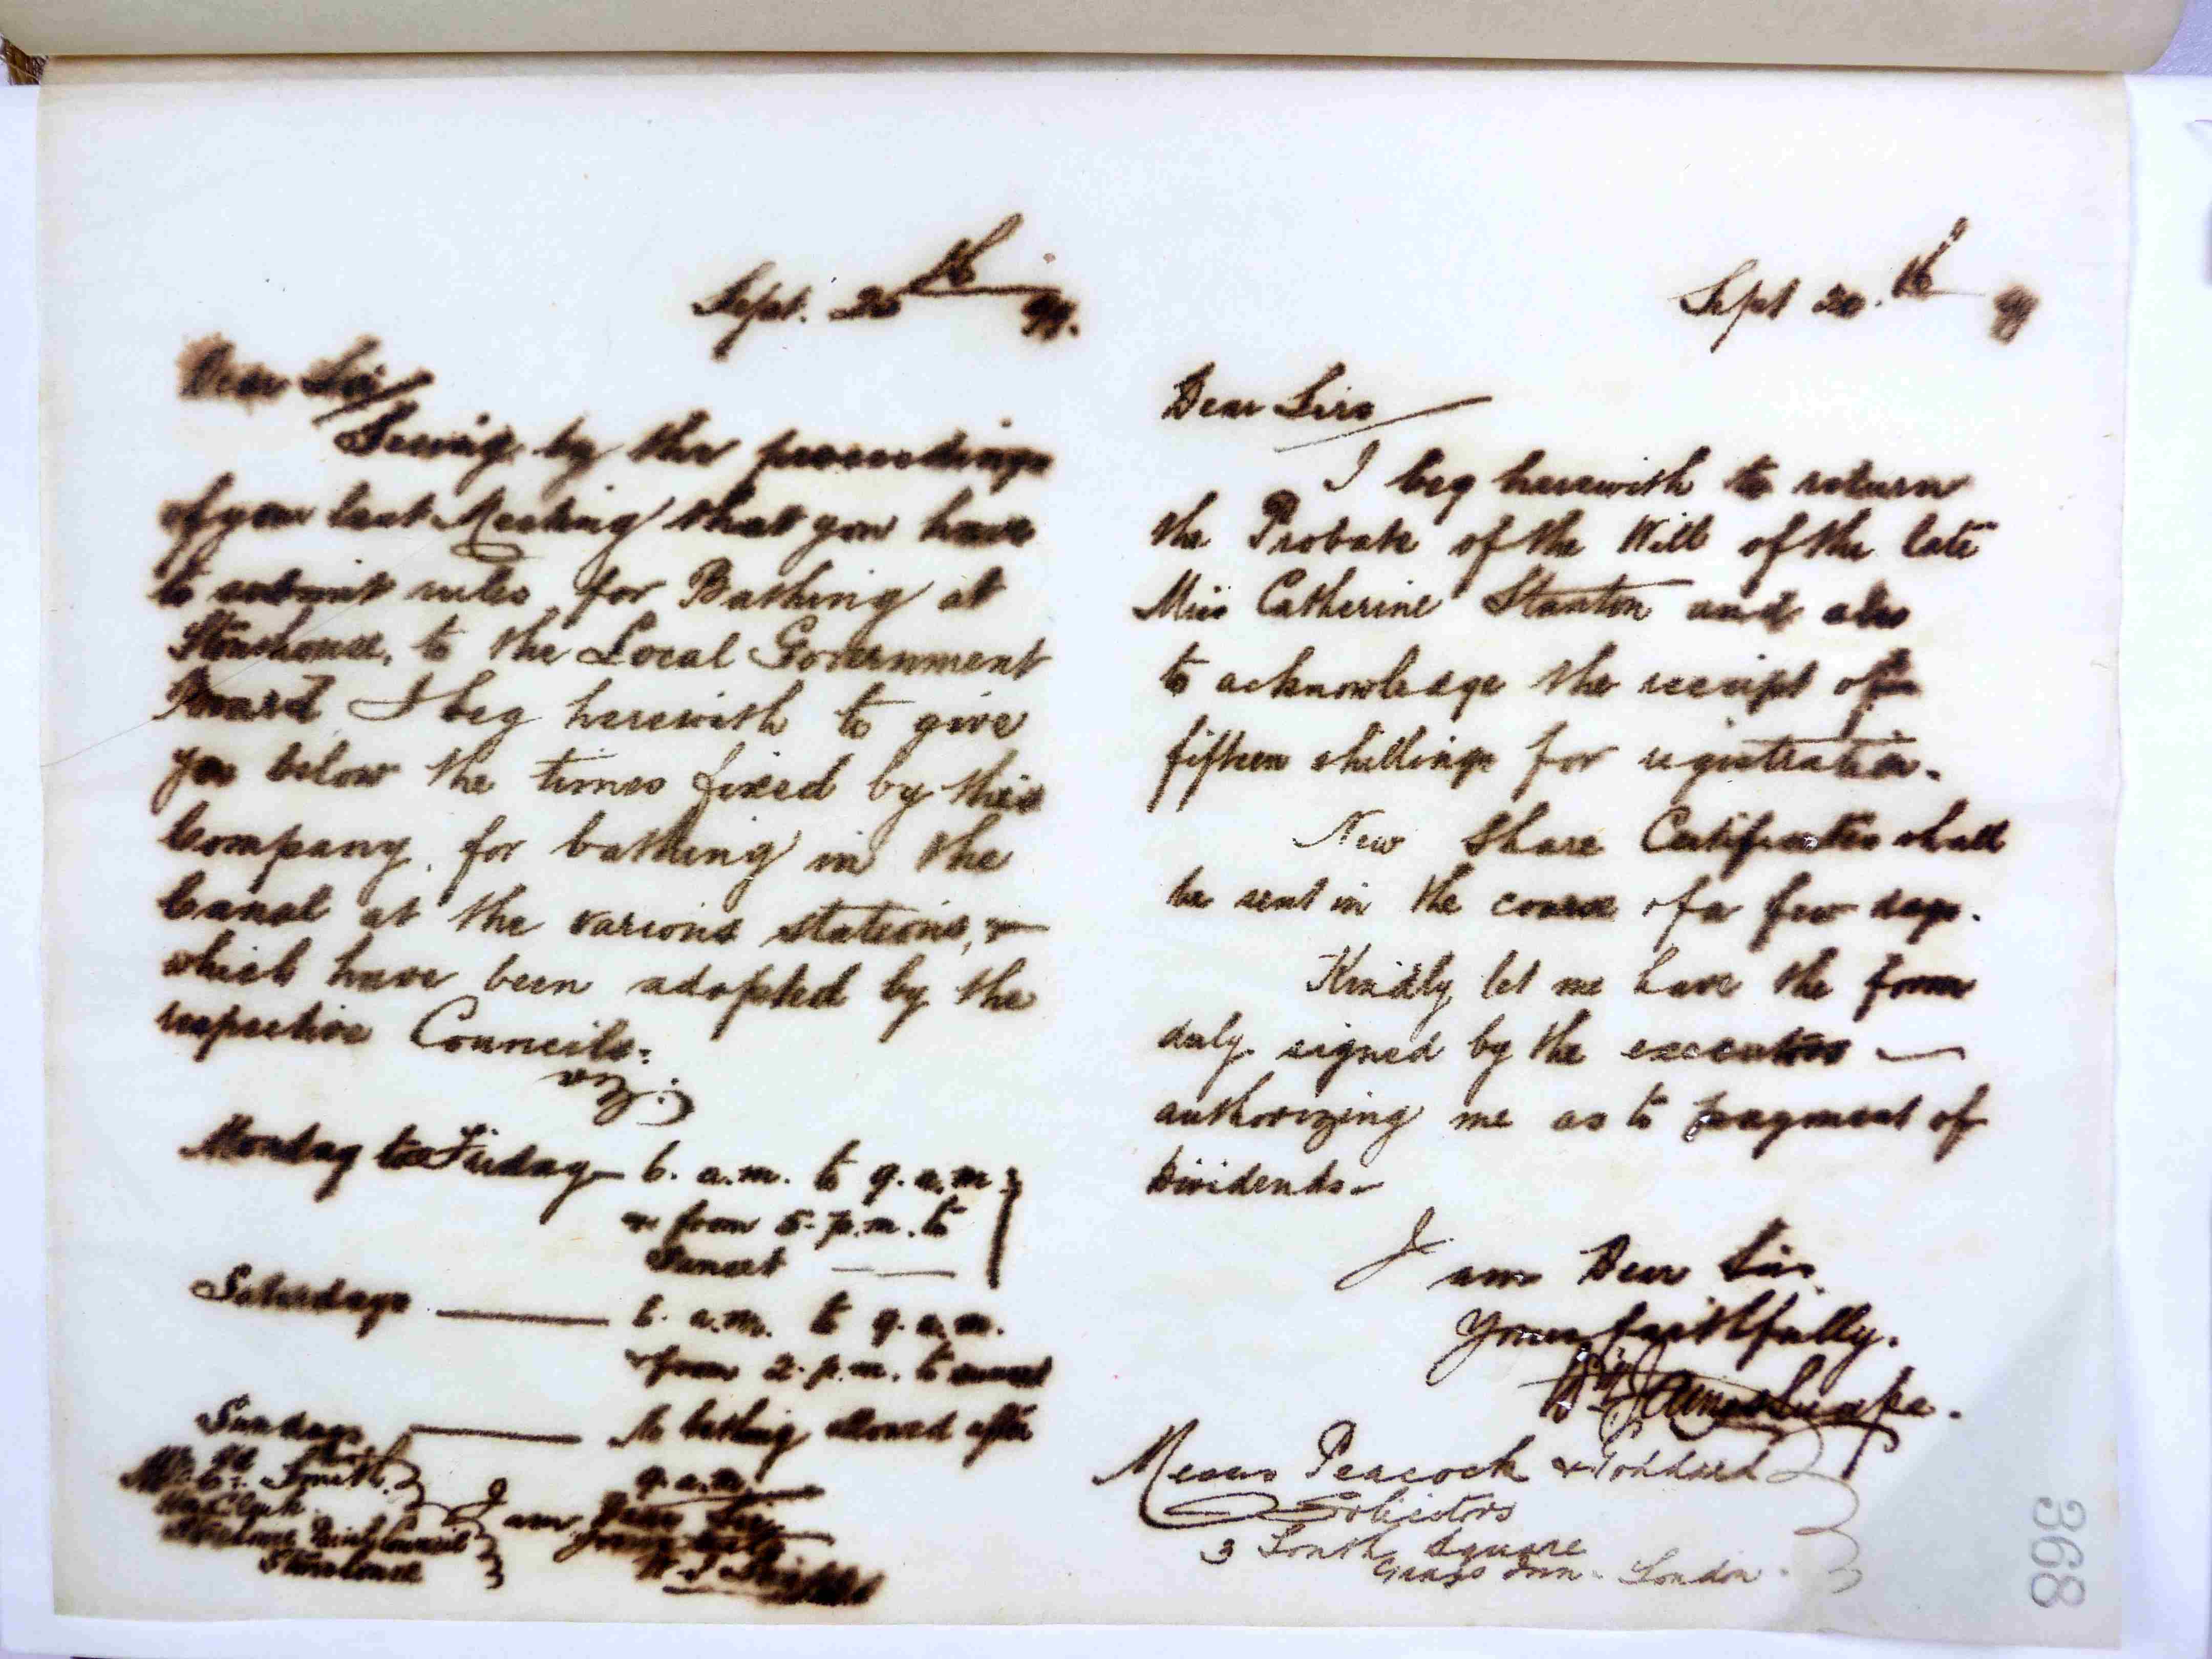 Sept. 20th 99.
Dear Sir
Seeing by the proceedings
of your last Meeting that you have
to submit rules for Bathing at
Stonehouse, to the Local Government
Board I beg herewith to give
you below the times fixed by this
Company, for bathing in the
Canal at the various stations,
which have been adopted by the
respective Councils.
viz:
Monday to Friday 6. a.m. to 9. a.m.
& from 5. p.m. to
Sunset
Saturdays 6. a.m. to 9. a.m.
& from 2. p.m. to sunset
Sundays No bathing allowed after
9. a.m.
Smith
I am Dear Sir
Clerk
Yours truly
Stonehouse Parish Council
Stonehouse
Sept 20.th 99
Dear Sirs
I beg herewith to return
the Probate of the Will of the late
Miss Catherine Stanton and also
to acknowledge the receipt of
fifteen shillings for registration.
New Share Certificates shall
be sent in the course of a few days.
Kindly let me have the form
duly signed by the executors
authorizing me as to payment of
Dividends
I am Dear Sirs
Yours faithfully.
Messrs Peacock & Goddard
Solicitors
3 South Square
Grays Inn. London.
368